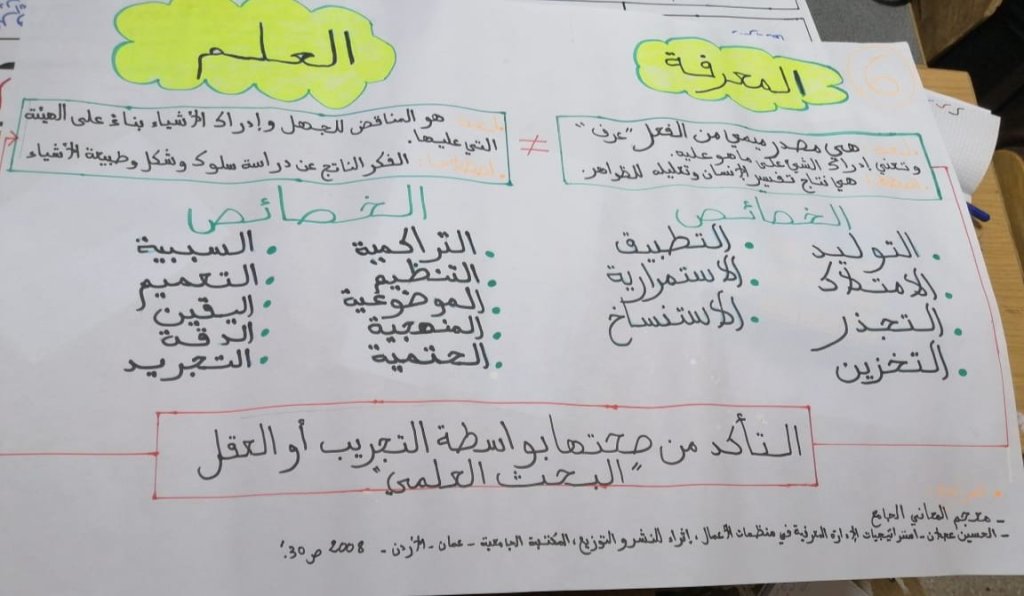 المعرفة
لغة: هي مصدر ميمي من الفعل "عرف"
وتعني إدراك الشيء على ما هو عليه.
اصطلاحا: هي نتاج تفسير الإنسان وتعليله للظواهر.
≠
العلم
لغة: هو المناقض للجهل وإدراك الأشياء بناء على الهيئة
التي عليها.
اصطلاحا: الفكر الناتج عن دراسة سلوك وشكل وطبيعة الأشياء
الخصائص
التوليد
الامتلاك
التجذر
التخزين
التطبيق
الاستمرارية
الاستنساخ
الخصائص
التراكمية
التنظيم
الموضوعية
المنهجية
الحتمية
السببية
التعميم
اليقين
الدقة
التجريد
التأكد من صحتها بواسطة التجريب أو العقل
"البحث العلمي"
- معجم المعاني الجامع
- الحسين عجلان - استراتيجيات الإدارة المعرفية في منظمات الأعمال، إثراء للنشر و التوزيع، المكتبة الجامعية - عمان - الأردن - 2008 ص 30.